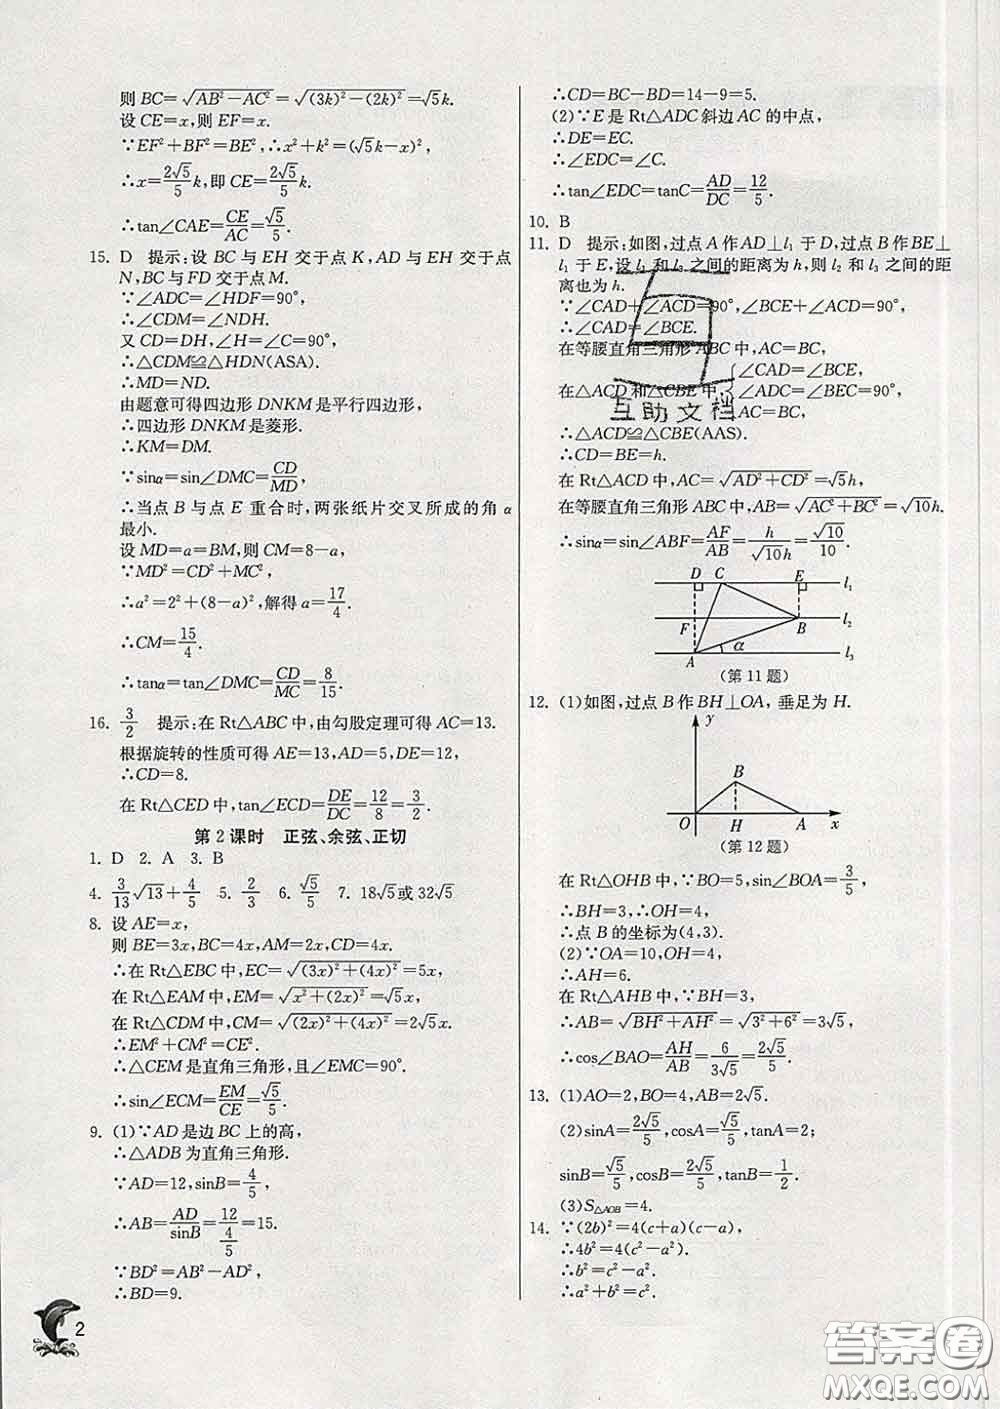 则 BC=√(AB²-AC²)=√((3k)²-(2k)²)=√5k.
设 CE=x,则 EF=x.
∵EF²+BF²=BE²,∴x²+k²=(√5k-x)²,
∴x=2√5/5k,即 CE=2√5/5k.
∴tan∠CAE=CE/AC=√5/5.
15. D 提示:设 BC 与 EH 交于点 K,AD 与 EH 交于点
N,BC 与 FD 交于点 M.
∵∠ADC=∠HDF=90°,
∴∠CDM=∠NDH.
又 CD=DH,∠H=∠C=90°,
∴△CDM≌△HDN(ASA).
∴MD=ND.
由题意可得四边形 DNKM 是平行四边形,
∴四边形 DNKM 是菱形.
∴KM=DM.
∵sinα=sin∠DMC=CD/MD,
∴当点 B 与点 E 重合时,两张纸片交叉所成的角 α
最小.
设 MD=a=BM,则 CM=8-a,
∵MD²=CD²+MC²,
∴a²=2²+(8-a)²,解得 a=17/4.
∴CM=15/4.
∴tanα=tan∠DMC=CD/MC=8/15.
16. 3/2 提示:在 Rt△ABC 中,由勾股定理可得 AC=13.
根据旋转的性质可得 AE=13,AD=5,DE=12,
∴CD=8.
在 Rt△CED 中,tan∠ECD=DE/DC=12/8=3/2.
第 2 课时 正弦、余弦、正切
1. D 2. A 3. B
4. 3/13√13+4/5 5. 2/3 6. √5/5 7. 18√5或 32√5
8. 设 AE=x,
则 BE=3x,BC=4x,AM=2x,CD=4x.
∴在 Rt△EBC 中,EC=√((3x)²+(4x)²)=5x,
在 Rt△EAM 中,EM=√(x²+(2x)²)=√5x,
在 Rt△CDM 中,CM=√((2x)²+(4x)²)=2√5x.
∴EM²+CM²=CE².
∴△CEM 是直角三角形,且∠EMC=90°.
∴sin∠ECM=EM/CE=√5/5.
9. (1)∵AD 是边 BC 上的高,
∴△ADB 为直角三角形.
∵AD=12,sinB=4/5,
∴AB=AD/sinB=12/(4/5)=15.
∵BD²=AB²-AD²,
∴BD=9.
2
∴CD=BC-BD=14-9=5.
(2)∵E 是 Rt△ADC 斜边 AC 的中点,
∴DE=EC.
∴∠EDC=∠C.
∴tan∠EDC=tanC=AD/DC=12/5.
10. B
11. D 提示:如图,过点 A 作 AD⊥l₁ 于 D,过点 B 作 BE⊥
l₁ 于 E,设 l₂ 和 l₃ 之间的距离为 h,则 l₂ 和 l₃ 之间的距
离也为 h.
∵∠CAD+∠ACD=90°,∠BCE+∠ACD=90°,
∴∠CAD=∠BCE.
在等腰直角三角形 ABC 中,AC=BC,
在△ACD 和△CBE 中,{∠CAD=∠BCE,
∠ADC=∠BEC=90°,
AC=BC,
互助文档
∴△ACD≌△CBE(AAS).
∴CD=BE=h.
在 Rt△ACD 中,AC=√(AD²+CD²)=√5h,
在等腰直角三角形 ABC 中,AB=√(AC²+BC²)=√10h.
∴sinα=sin∠ABF=AF/AB=h/√10h=√10/10.
D C E l₁
F B l₂
A α l₃
(第 11 题)
12. (1)如图,过点 B 作 BH⊥OA, 垂足为 H.
y
B
O H A x
(第 12 题)
在 Rt△OHB 中,∵BO=5,sin∠BOA=3/5,
∴BH=3,∴OH=4,
∴点 B 的坐标为(4,3).
(2)∵OA=10,OH=4,
∴AH=6.
在 Rt△AHB 中,∵BH=3,
∴AB=√(BH²+AH²)=√(3²+6²)=3√5,
∴cos∠BAO=AH/AB=6/3√5=2√5/5.
13. (1)AO=2,BO=4,AB=2√5.
(2)sinA=2√5/5,cosA=√5/5,tanA=2;
sinB=√5/5,cosB=2√5/5,tanB=1/2.
(3)S△AOB=4.
14. ∵(2b)²=4(c+a)(c-a),
∴4b²=4(c²-a²).
∴b²=c²-a².
∴a²+b²=c².
答案圈
MXQE.COM